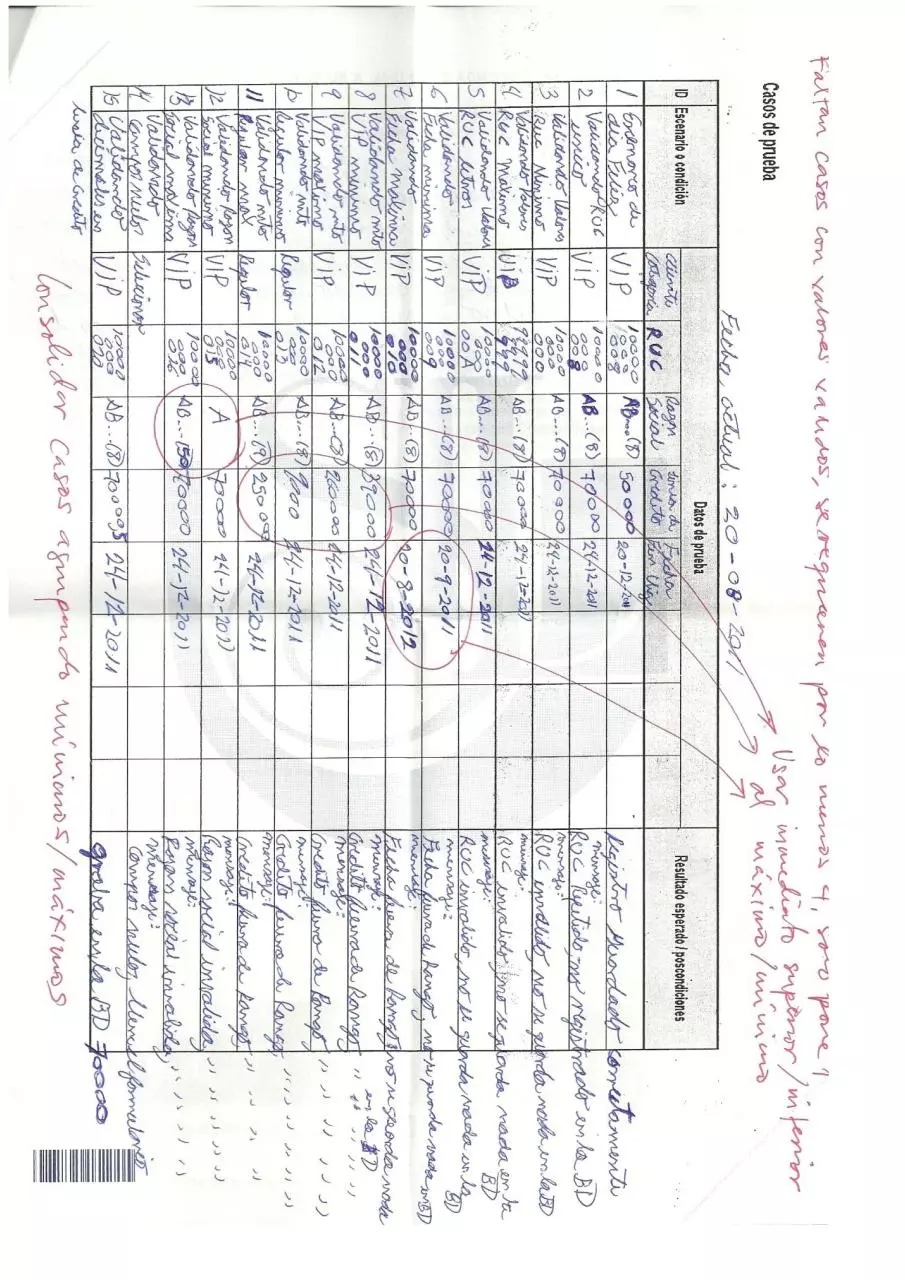 Faltan casos con valores validos, se requieren por lo menos 4, solo pone 1
Usar inmediato superior/inferior
al máximo/mínimo
Casos de prueba
Fecha actual: 20-08-2011
Datos de prueba
ID Escenario o condición Cliente Categoria RUC Razon Social Linea de Credito Fecha Fin Vig Resultado esperado / poscondiciones
1 Escenario de dia Feliz VIP 10000 000 008 AB...(8) 50000 20-12-2011 Registro guardado correctamente
2 Validando RUC unico VIP 10000 000 008 AB...(8) 70000 24-12-2011 mensaje: RUC Repetido no registrado en la BD
3 Validando Valores Ruc Minimo VIP 10000 000 000 AB...(8) 70000 24-12-2011 mensaje: RUC invalido, no se guarda nada en la BD
4 Validando Valores RUC Maximo VIP 99999 999 999 AB...(8) 70000 24-12-2011 mensaje: RUC invalido, no se guarda nada en la BD
5 Validando Valores RUC letras VIP 10000 000 00A AB...(8) 70000 24-12-2011 mensaje: RUC invalido, no se guarda nada en la BD
6 Validando Fecha minima VIP 10000 000 009 AB...(8) 70000 20-9-2011 mensaje: Fecha fuera de Rango no se guarda nada en BD
7 Validando Fecha Maxima VIP 10000 000 010 AB...(8) 70000 20-8-2012 Fecha fuera de Rango no se guarda nada en la BD
8 Validando mto VIP minimo VIP 10000 000 011 AB...(8) 24-12-2011 mensaje: Credito fuera de Rango " " "
9 Validando mto VIP maximo VIP 10000 000 012 AB...(8) 24-12-2011 mensaje: Credito fuera de Rango " " "
10 Validando mto Regular minimo Regular 10000 000 013 AB...(8) 24-12-2011 mensaje: Credito fuera de Rango " " "
11 Validando mto Regular max Regular 10000 000 014 AB...(8) 25000 24-12-2011 mensaje: Credito fuera de Rango " "
12 Validando Razon Social minimo VIP 10000 000 015 A 70000 24-12-2011 mensaje: Razon social invalida " " " "
13 Validando Razon Social maxima VIP 10000 000 016 AB...150 70000 24-12-2011 mensaje: Razon social invalida " " " "
14 Validando Campos nulos Seleccionar mensaje: Campos nulos, llene el formulario
15 Validando decimales en linea de credito VIP 10000 000 020 AB...(8) 70000.5 24-12-2011 graba en la BD 70000
Consolidar casos agrupando minimos/máximos